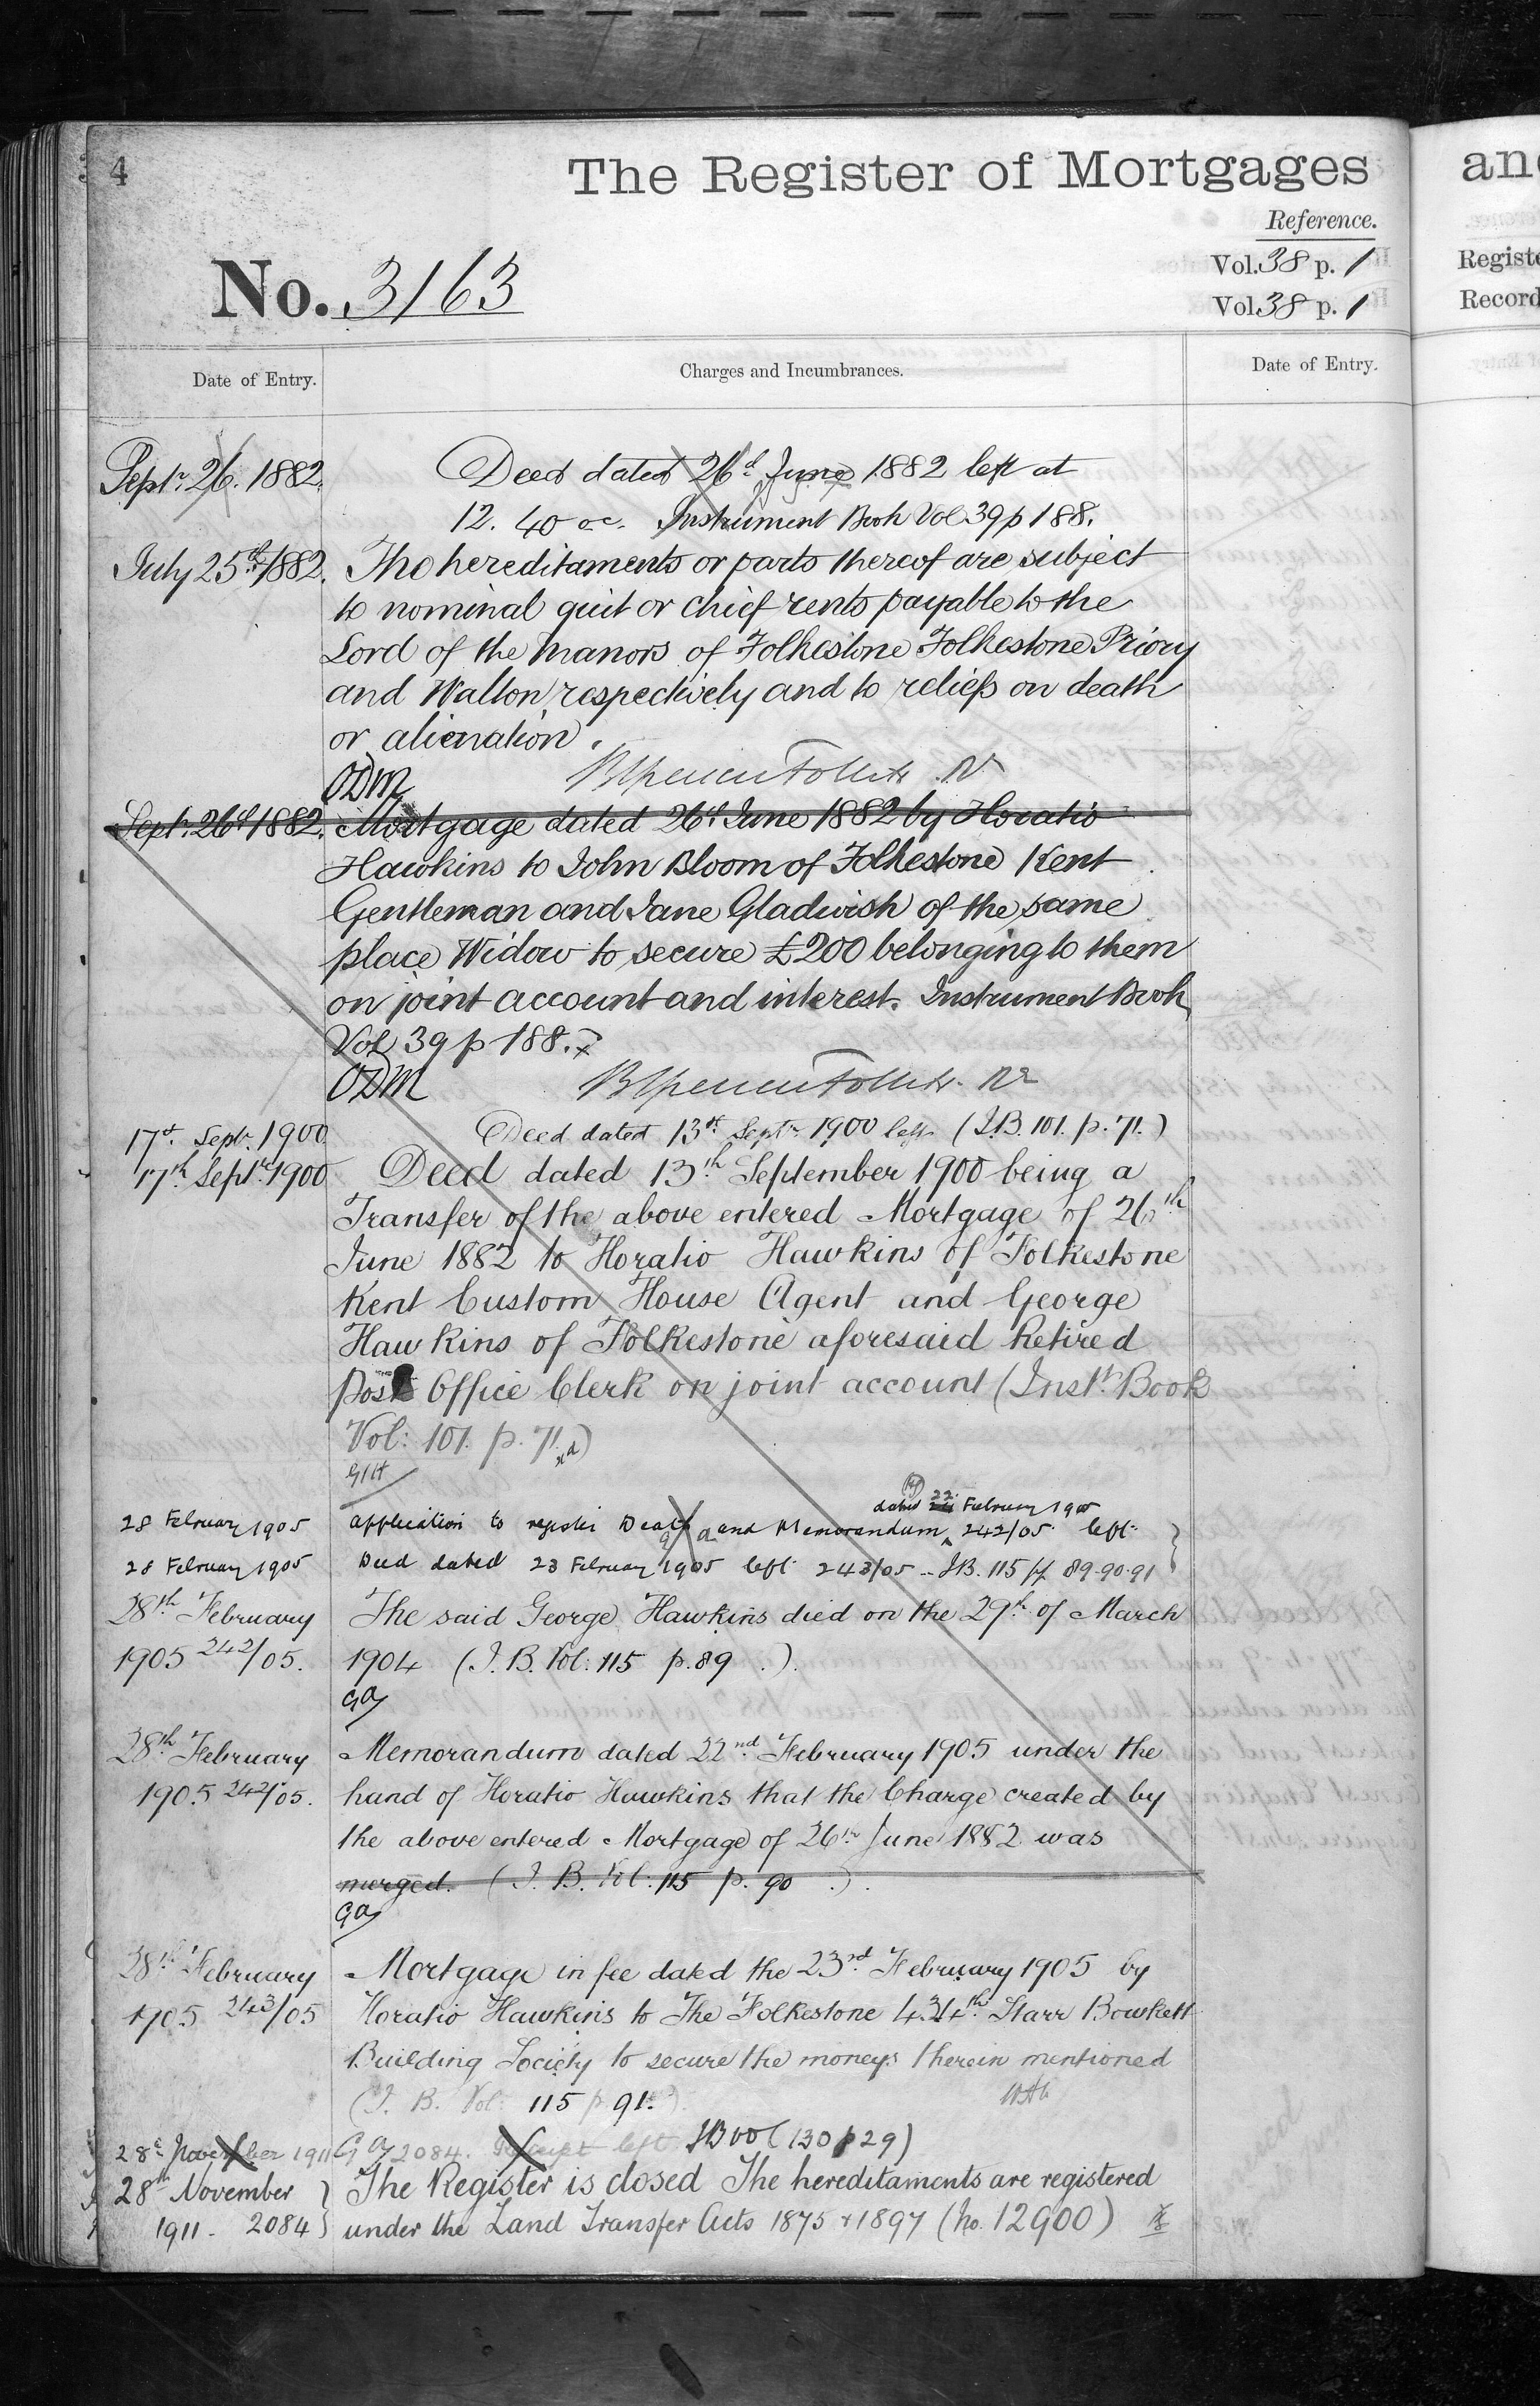 4
The Register of Mortgages
Reference.
No. 3163
Vol. 38 p. 1
Vol. 38 p. 1
Date of Entry.
Charges and Incumbrances.
Date of Entry.
Sept. 26. 1882. Deed dated 26th June 1882 left at
12. 40 oc. Instrument Book Vol 39 p 188.
July 25th 1882. The hereditaments or parts thereof are subject
to nominal quit or chief rents payable to the
Lord of the Manors of Folkestone Folkestone Priory
and Walton respectively and to reliefs on death
or alienation.
ODM
Sept. 26th 1882. Mortgage dated 26th June 1882 by Horatio
Hawkins to John Bloom of Folkestone Kent
Gentleman and Jane Gladwish of the same
place Widow to secure £200 belonging to them
on joint account and interest. Instrument Book
Vol 39 p 188.
ODM
17th Septr. 1900 Deed dated 13th Septr 1900 left (I.B. 101. p. 71.)
17th Septr. 1900 Deed dated 13th September 1900 being a
Transfer of the above entered Mortgage of 26th
June 1882 to Horatio Hawkins of Folkestone
Kent Custom House Agent and George
Hawkins of Folkestone aforesaid Retired
Post Office Clerk on joint account (Inst. Book
Vol: 101. p. 71.)
GIH
dated 22 February 1905
28 February 1905 application to register Death and Memorandum 242/05 left
28 February 1905 Deed dated 23 February 1905 left 243/05 -- I.B. 115 pp. 89.90.91
28th February The said George Hawkins died on the 29th of March
1905 242/05. 1904 (I.B. Vol: 115 p. 89.)
GA
28th February Memorandum dated 22nd February 1905 under the
1905 242/05. hand of Horatio Hawkins that the Charge created by
the above entered Mortgage of 26th June 1882 was
merged. (I.B. Vol: 115 p. 90.)
GA
28th February Mortgage in fee dated the 23rd February 1905 by
1905 243/05 Horatio Hawkins to The Folkestone 434th Starr Bowkett
Building Society to secure the moneys therein mentioned
(I.B. Vol: 115 p 91.)
28th November 1911 GA 2084. Receipt left IB vol (130 p 29)
28th November The Register is closed The hereditaments are registered
1911 - 2084 under the Land Transfer Acts 1875 & 1897 (No. 12900)
and
Registe
Record